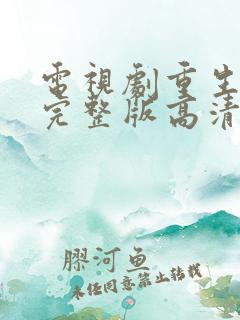 電視劇重生
完整版高清
膠河鱼
未任同意禁止转载